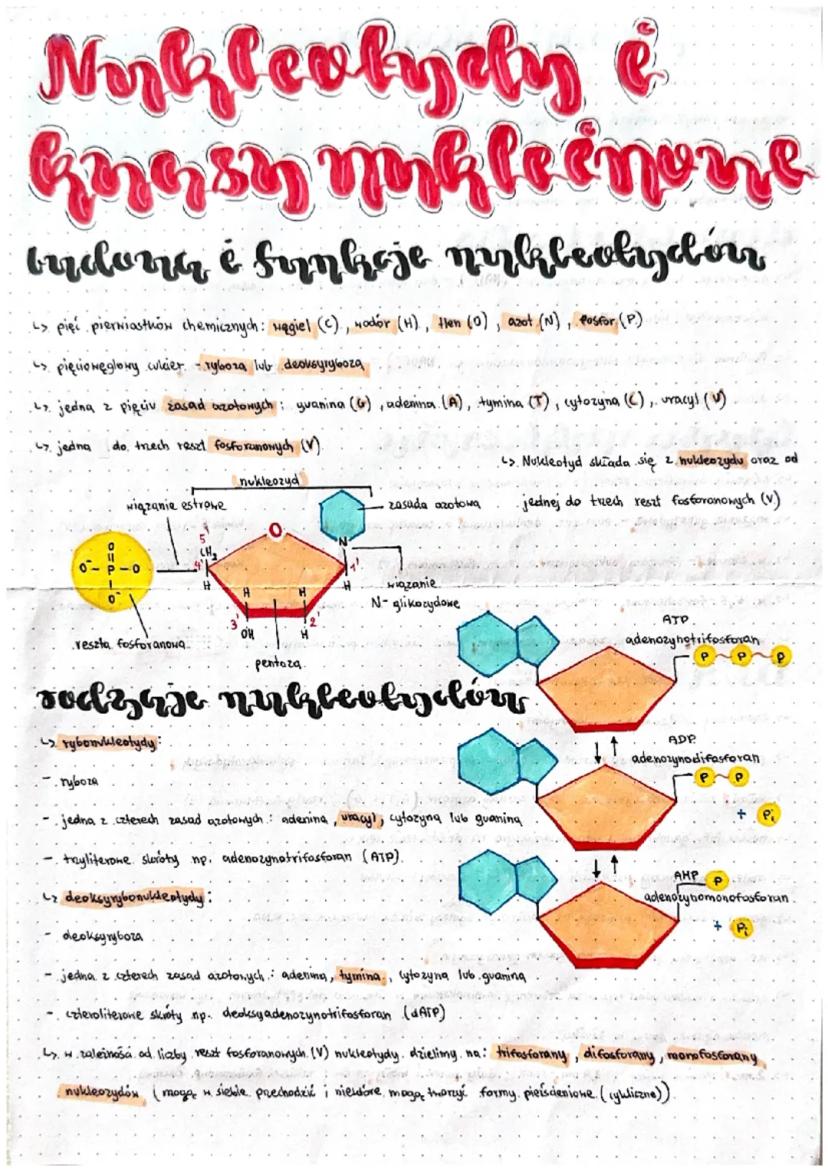 Nukleotydy i
kwasy nukleinowe
budowa i funkcje nukleotydów
↳ pięć pierwiastków chemicznych: węgiel (C), wodór (H), tlen (O), azot (N), fosfor (P)
↳ pięciowęglowy cukier - ryboza lub deoksyryboza
↳ jedna z pięciu zasad azotowych: guanina (G), adenina (A), tymina (T), cytozyna (C), uracyl (U)
↳ jedna do trzech reszt fosforanowych (V)
↳ Nukleotyd składa się z nukleozydu oraz od
jednej do trzech reszt fosforanowych (V)
nukleozyd
wiązanie estrowe
zasada azotowa
O
O⁻ - P - O
O⁻
5'
CH₂
4'
H
O
N
1'
H
H
H
3'
OH
2'
H
wiązanie
N-glikozydowe
reszta fosforanowa
pentoza
ATP
adenozynotrifosforan
P P P
rodzaje nukleotydów
ADP
adenozynodifosforan
P P
+ Pi
AMP
P
adenozynomonofosforan
+ Pi
↳ rybonukleotydy:
- ryboza
- jedna z czterech zasad azotowych: adenina, uracyl, cytozyna lub guanina
- trzyliterowe skróty np. adenozynotrifosforan (ATP).
↳ deoksyrybonukleotydy:
- deoksyryboza
- jedna z czterech zasad azotowych: adenina, tymina, cytozyna lub guanina
- czteroliterowe skróty np. deoksyadenozynotrifosforan (dATP)
↳ w zależności od liczby reszt fosforanowych (V) nukleotydy dzielimy na: trifosforany, difosforany, monofosforany
nukleozydów (mogą w siebie przechodzić i niektóre mogą tworzyć formy pierścieniowe (cykliczne))